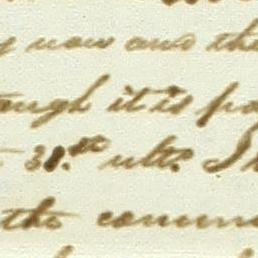 now and the
ough it is pa
31.st ulto. I
the comm